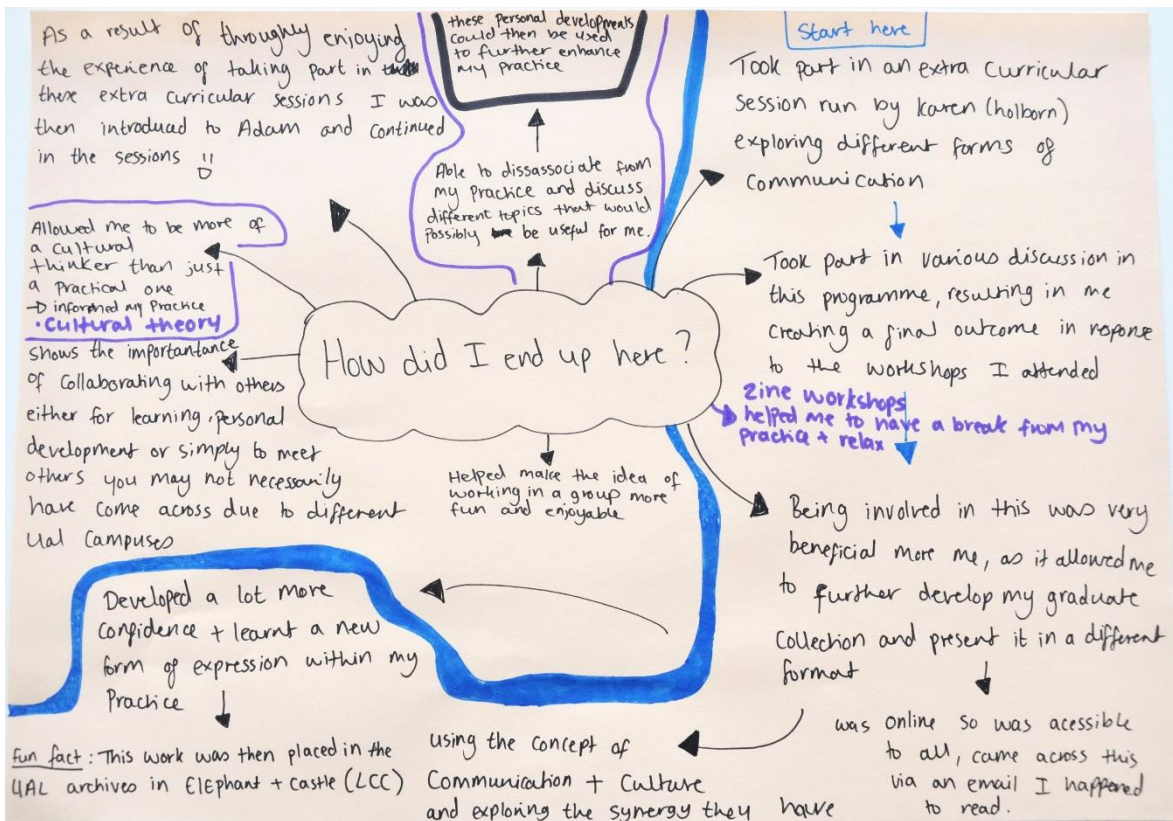 Start here
Took part in an extra curricular
session run by Karen (holborn)
exploring different forms of
Communication
Took part in various discussion in
this programme, resulting in me
creating a final outcome in reponse
to the workshops I attended
Zine workshops
helped me to have a break from my
practice + relax
Being involved in this was very
beneficial more me, as it allowed me
to further develop my graduate
Collection and present it in a different
format
was online so was acessible
to all, came across this
via an email I happened
to read.
using the concept of
Communication + Culture
and exploring the synergy they have
Developed a lot more
confidence + learnt a new
form of expression within my
Practice
Fun fact: This work was then placed in the
UAL archives in Elephant + Castle (LCC)
Helped make the idea of
working in a group more
fun and enjoyable
How did I end up here?
shows the importantance
of collaborating with others
either for learning, personal
development or simply to meet
others you may not necessarily
have come across due to different
ual campuses
Allowed me to be more of
a cultural
thinker than just
a Practical one
→ informed my Practice
• Cultural theory
As a result of throughly enjoying
the experience of taking part in
these extra curricular sessions I was
then introduced to Adam and continued
in the sessions
Able to dissassociate from
my Practice and discuss
different topics that would
possibly be useful for me.
these personal developments
could then be used
to further enhance
my practice